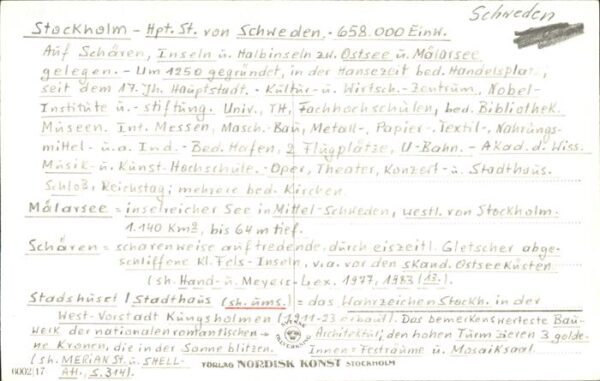 Schweden
Stockholm - Hpt. St. von Schweden, - 658.000 Einw.
Auf Schären, Inseln u. Halbinseln zw. Ostsee u. Mälarsee
gelegen. - Um 1250 gegründet, in der Hansezeit bed. Handelsplatz,
seit dem 17. Jh. Hauptstadt. - Kultur- u. Wirtsch.-Zentrum, Nobel-
Institute u. -stiftung. Univ., TH, Fachhochschulen, bed. Bibliothek.
Museen. Int. Messen, Masch.-Bau, Metall-, Papier-, Textil-, Nahrungs-
mittel- u.a. Ind. - Bed. Hafen, 2 Flugplätze, U-Bahn. - Akad. d. Wiss.
Musik- u. Kunst-Hochschule. - Oper, Theater, Konzert- u. Stadthaus.
Schloß, Reichstag; mehrere bed. Kirchen.
Mälarsee = inselreicher See in Mittel-Schweden, westl. von Stockholm.
1.140 Km², bis 64 m tief.
Schären = scharenweise auftretende, durch eiszeitl. Gletscher abge-
schliffene Kl. Fels-Inseln, v.a. vor den skand. Ostseeküsten
(sh. Hand- u. Meyers-Lex. 1977, 1983 (13.)
Stadshuset / Stadthaus (sh. ums.) = das Wahrzeichen Stockh. in der
West-Vorstadt Kungsholmen (1911-23 erbaut). Das bemerkenswerteste Bau-
werk der nationalromantischen Architektur; den hohen Turm zieren 3 golde-
ne Kronen, die in der Sonne blitzen. Innen = Festräume u. Mosaiksaal
(sh. MERIAN St. u. SHELL-
Atl., S. 314).
6002/17
FÖRLAG NORDISK KONST STOCKHOLM